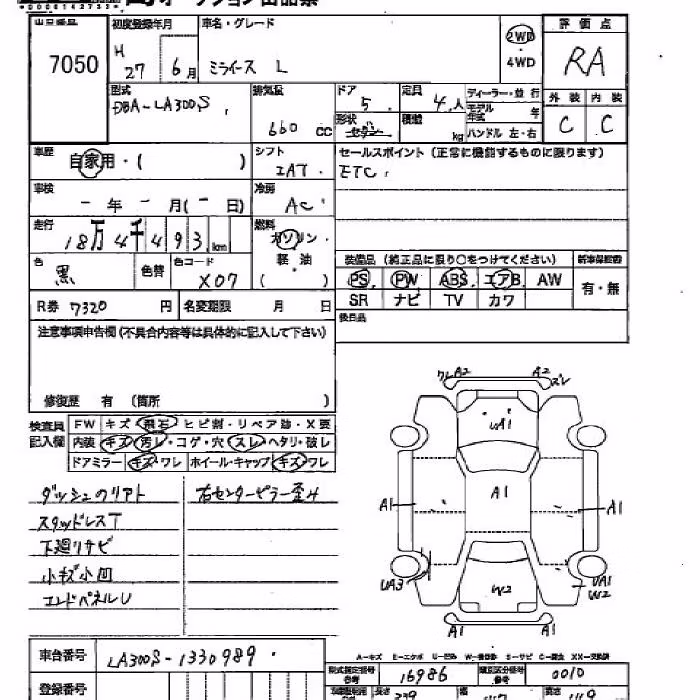 出品番号 初度登録年月 車名・グレード 評価点
7050 H 27 年 6月 ミライース L 2WD ・ 4WD RA
型式 排気量 ドア 定員 ディーラー・並行 外装 内装
DBA-LA300S 660 cc 5 4人 モデル年式 年 C C
形状 セダン 積載 kg ハンドル 左・右
車歴 自家用・( ) シフト IAT セールスポイント (正常に機能するものに限ります)
車検 - 年 - 月(- 日) 冷房 AC ETC
走行 18万4千493km 燃料 ガソリン・軽油 ( )
色 黒 色替 色コード X07 装備品 (純正品に限り○をつけてください) 新車保証書
PS PW ABS エアB AW 有・無
R券 7320 円 名変期限 月 日 SR ナビ TV カワ
注意事項申告欄(不具合内容等は具体的に記入して下さい) 後日品
修復歴 有 (箇所 )
検査員記入欄 FW キズ・飛石・ヒビ割・リペア跡・X要
内装 キズ・汚レ・コゲ・穴・スレ・ヘタリ・破レ
ドアミラー キズ・ワレ ホイール・キャップ キズ・ワレ
ダッシュのリアト 右センターピラー歪み
スタッドレスT
下廻りサビ
小キズ小凹
エンドパネルU
A2 A2
UA1
A1 A1 A1
UA3 W2 UA1 W2
A1 A1
A=キズ E=エクボ U=凹ミ W=補修跡 S=サビ C=腐食 XX=交換済
車台番号 LA300S-1330989 型式指定番号 16986 類別区分番号 0010
登録番号 長さ 339